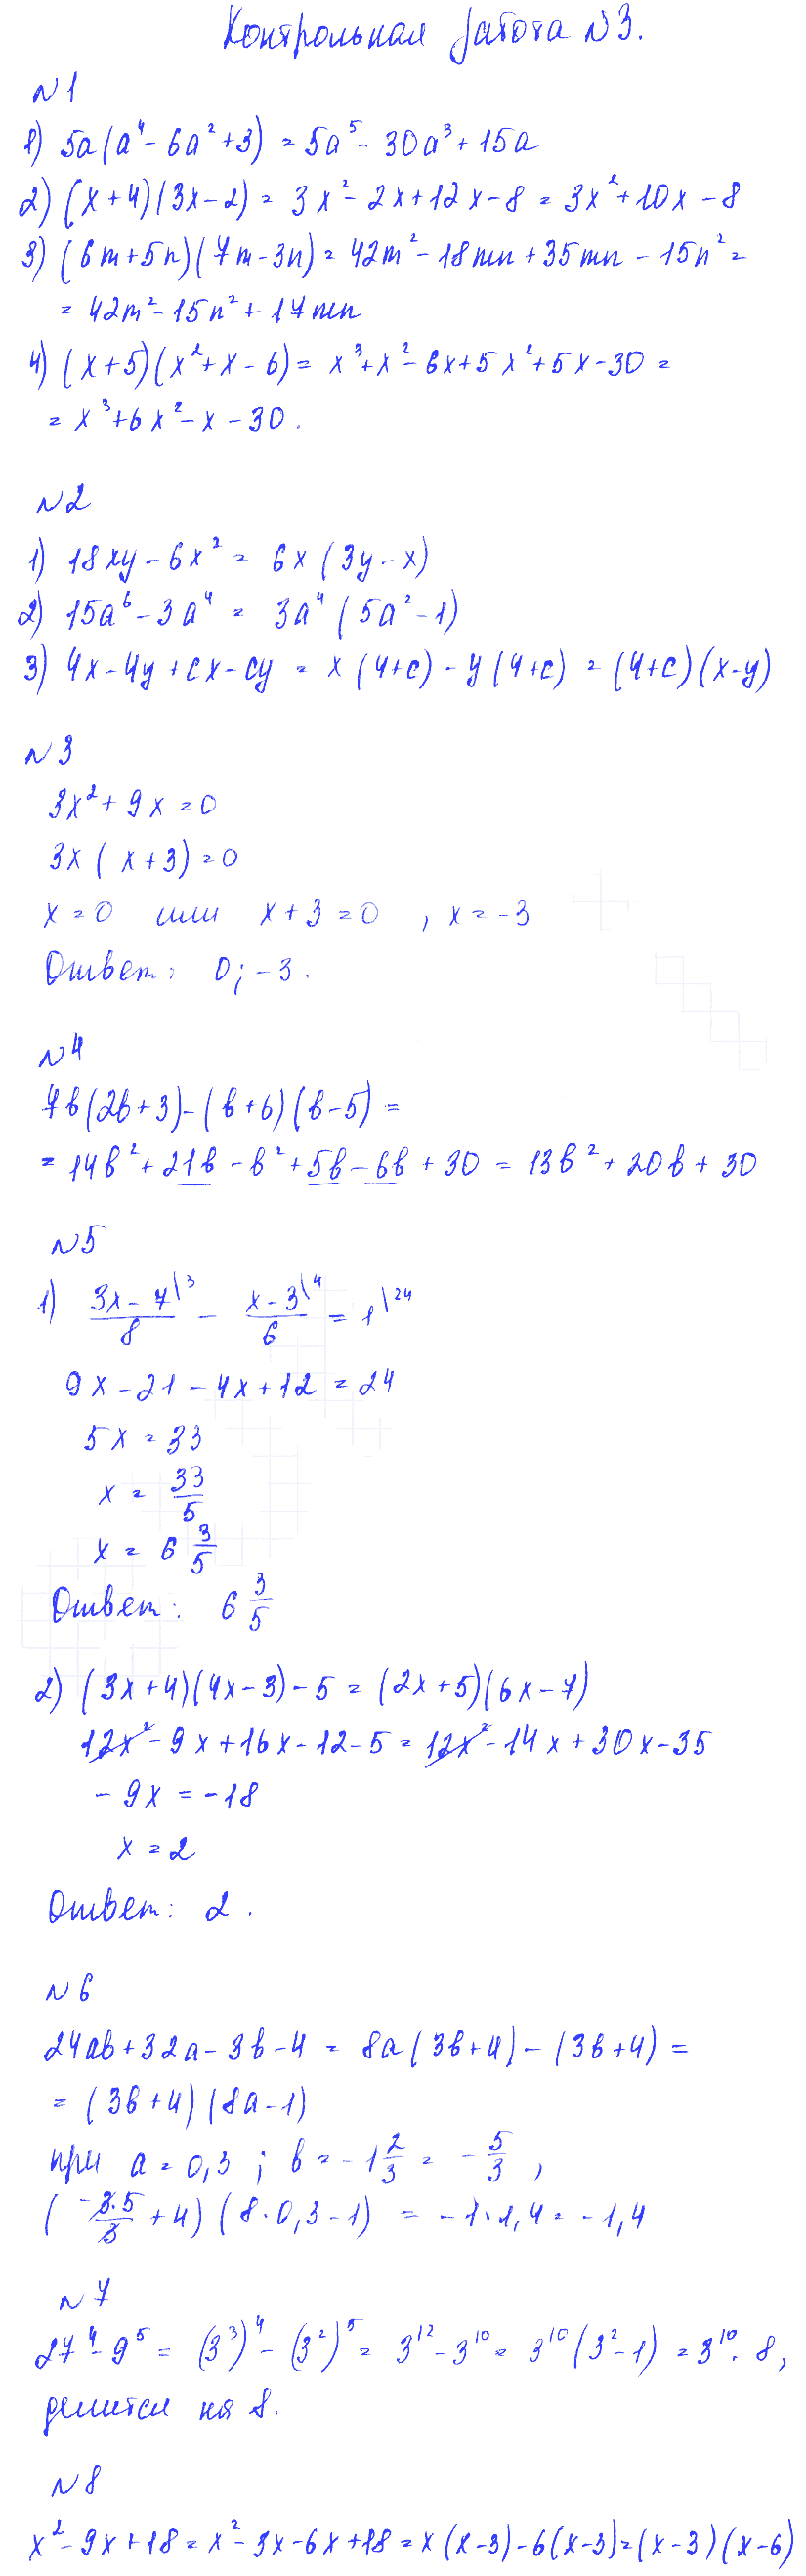 Контрольная работа №3.
№1
1) 5a(a⁴ - 6a² + 3) = 5a⁵ - 30a³ + 15a
2) (x+4)(3x-2) = 3x² - 2x + 12x - 8 = 3x² + 10x - 8
3) (6m+5n)(7m-3n) = 42m² - 18mn + 35mn - 15n² =
= 42m² - 15n² + 17mn
4) (x+5)(x²+x-6) = x³ + x² - 6x + 5x² + 5x - 30 =
= x³ + 6x² - x - 30.
№2
1) 18xy - 6x² = 6x(3y - x)
2) 15a⁶ - 3a⁴ = 3a⁴(5a² - 1)
3) 4x - 4y + cx - cy = x(4+c) - y(4+c) = (4+c)(x-y)
№3
3x² + 9x = 0
3x(x+3) = 0
x = 0 или x + 3 = 0, x = -3
Ответ: 0; -3.
№4
7b(2b+3) - (b+6)(b-5) =
= 14b² + 21b - b² + 5b - 6b + 30 = 13b² + 20b + 30
№5
1) (3x - 7)/8 \3 - (x - 3)/6 \4 = 1 \24
9x - 21 - 4x + 12 = 24
5x = 33
x = 33/5
x = 6 3/5
Ответ: 6 3/5
2) (3x+4)(4x-3) - 5 = (2x+5)(6x-7)
12x² - 9x + 16x - 12 - 5 = 12x² - 14x + 30x - 35
-9x = -18
x = 2
Ответ: 2.
№6
24ab + 32a - 3b - 4 = 8a(3b+4) - (3b+4) =
= (3b+4)(8a-1)
при a = 0,3; b = -1 2/3 = -5/3,
(-3·5/3 + 4)(8·0,3 - 1) = -1·1,4 = -1,4
№7
27⁴ - 9⁵ = (3³)⁴ - (3²)⁵ = 3¹² - 3¹⁰ = 3¹⁰(3² - 1) = 3¹⁰·8,
делится на 8.
№8
x² - 9x + 18 = x² - 3x - 6x + 18 = x(x-3) - 6(x-3) = (x-3)(x-6)